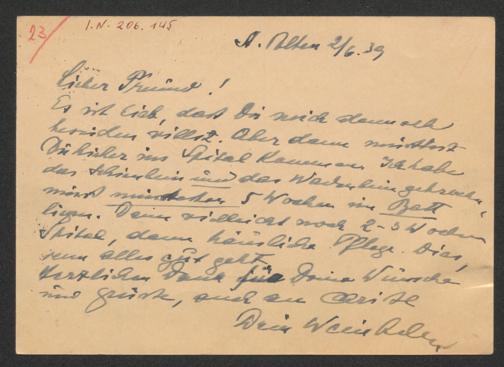 23
I.N. 206.145
St. Pölten 2/6. 39
Lieber Freund!
Es ist lieb, daß Du mich demnach
besuchen willst. Aber dann müßtest
Du hieher ins Spital kommen. Ich habe
das Schienbein und das Wadenbein gebrochen,
muß mindestens 5 Wochen im Bett
liegen. Dann vielleicht noch 2-3 Wochen
Spital, dann häusliche Pflege. Dies,
wenn alles gut geht.
Herzlichen Dank für Deine Wünsche
und Grüße, auch an
Dein